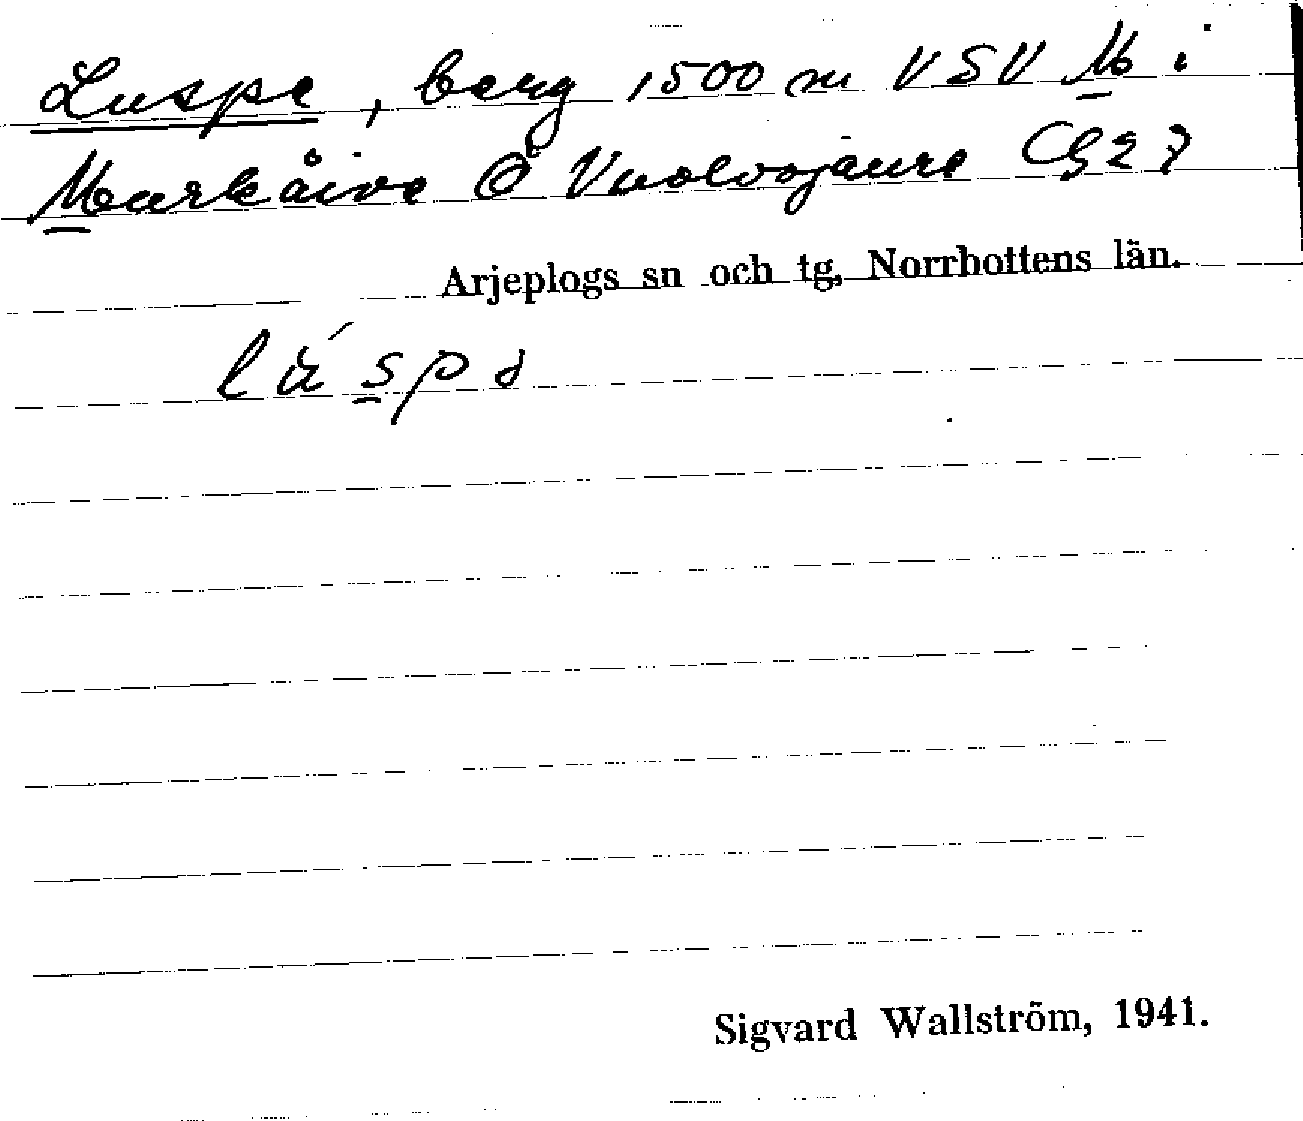 Luspe, berg 1500 m VSV M i
Markåive Ö Vuolvojaure Cg 27
Arjeplogs sn och tg, Norrbottens län.
lú̄spə
Sigvard Wallström, 1941.